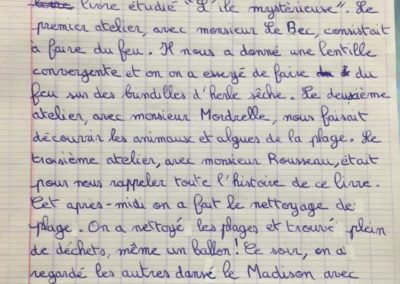 livre étudié "L'île mystérieuse". Le
premier atelier, avec monsieur Le Bec, consistait
à faire du feu. Il nous a donné une lentille
convergente et on on a essayé de faire du
feu sur des bundilles d'herbe sèche. Le deuxième
atelier, avec monsieur Mordrelle, nous faisait
découvrir les animaux et algues de la plage. Le
troisième atelier, avec monsieur Rousseau, était
pour nous rappeler toute l'histoire de ce livre.
Cet apres-midi on a fait le nettoyage de
plage. On a nettoyé les plages et trouvé plein
de déchets, même un ballon! Ce soir, on a
regardé les autres dansé le Madison avec